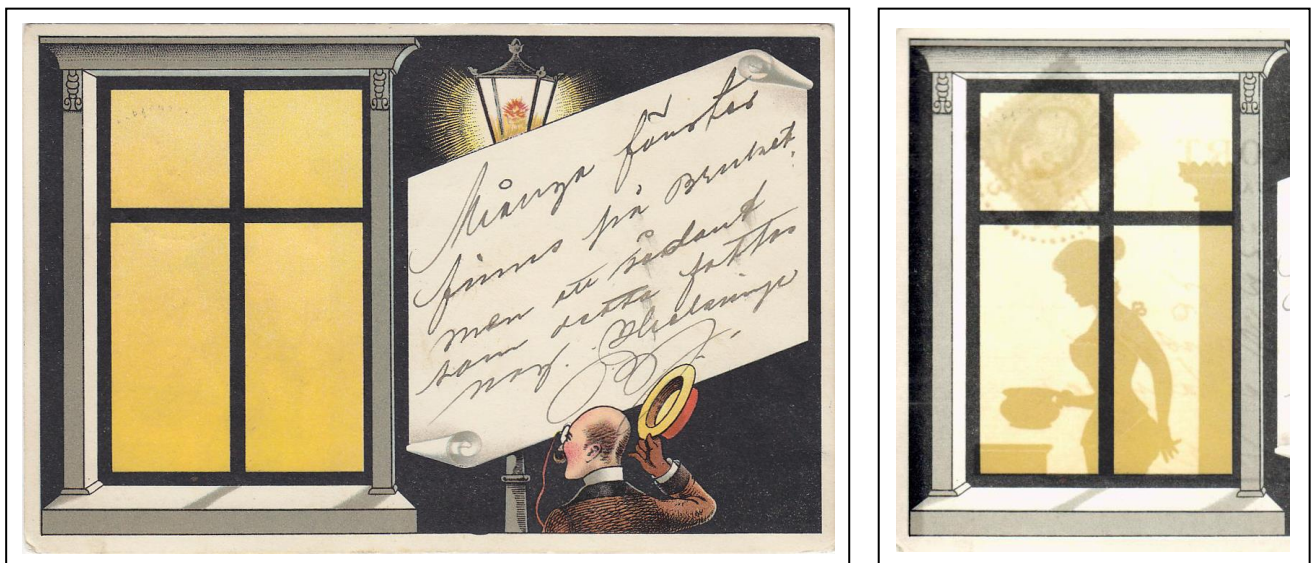 Många fönster
finns på Bruket
men ett sådant
som detta fattas
nog. Helsninge